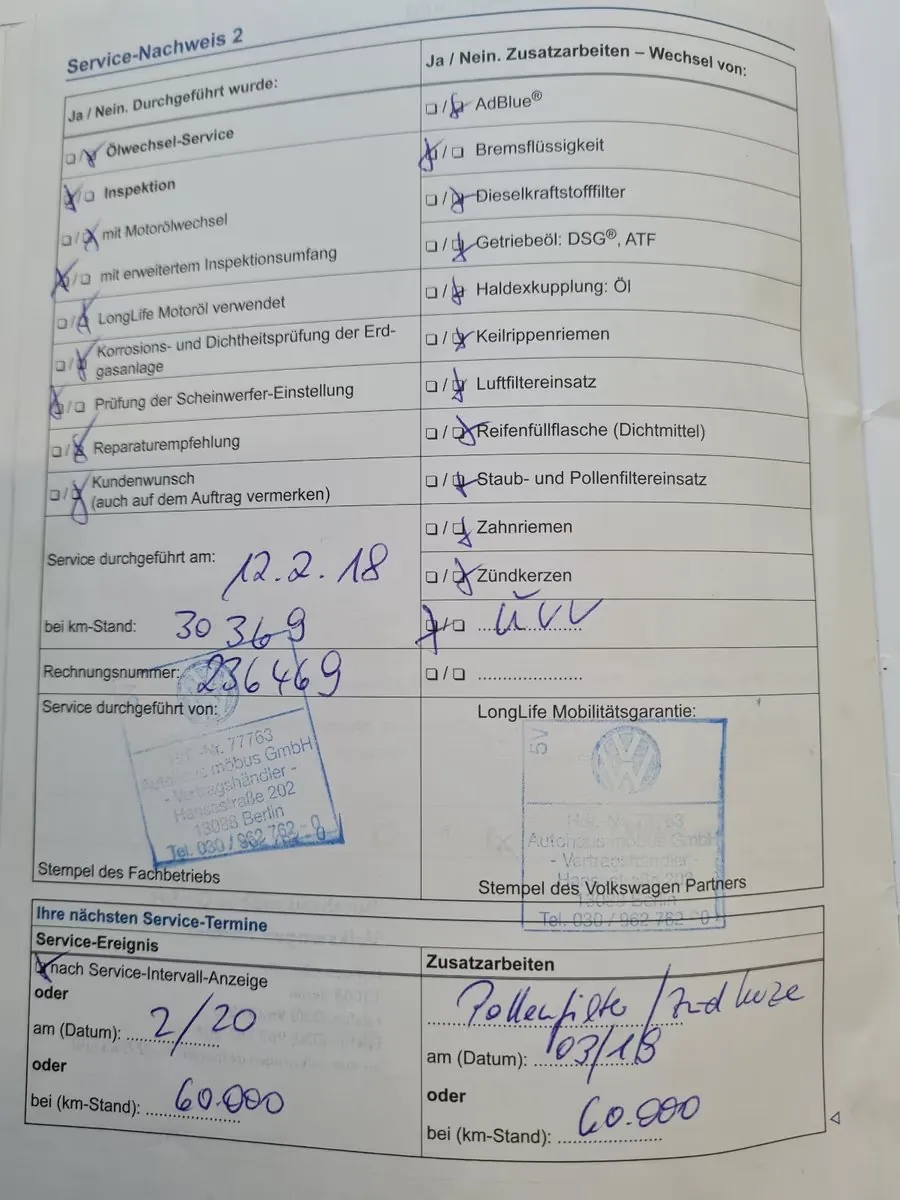 Service-Nachweis 2
Ja / Nein. Durchgeführt wurde:
Ölwechsel-Service
Inspektion
mit Motorölwechsel
mit erweitertem Inspektionsumfang
LongLife Motoröl verwendet
Korrosions- und Dichtheitsprüfung der Erd-
gasanlage
Prüfung der Scheinwerfer-Einstellung
Reparaturempfehlung
Kundenwunsch
(auch auf dem Auftrag vermerken)
Service durchgeführt am: 12.2.18
bei km-Stand: 30 369
Rechnungsnummer: 236469
Service durchgeführt von:
-Nr. 77763
Autohaus möbus GmbH
- Vertragshändler -
Hansastraße 202
13088 Berlin
Tel. 030 / 962 762 - 0
Stempel des Fachbetriebs
Ja / Nein. Zusatzarbeiten – Wechsel von:
AdBlue®
Bremsflüssigkeit
Dieselkraftstofffilter
Getriebeöl: DSG®, ATF
Haldexkupplung: Öl
Keilrippenriemen
Luftfiltereinsatz
Reifenfüllflasche (Dichtmittel)
Staub- und Pollenfiltereinsatz
Zahnriemen
Zündkerzen
UVV
LongLife Mobilitätsgarantie:
5V
Autohaus möbus GmbH
- Vertragshändler -
13088 Berlin
Tel. 030 / 962 762 - 0
Stempel des Volkswagen Partners
Ihre nächsten Service-Termine
Service-Ereignis
nach Service-Intervall-Anzeige
oder
am (Datum): 2/20
oder
bei (km-Stand): 60.000
Zusatzarbeiten
Pollenfilter /
am (Datum): 03/18
oder
bei (km-Stand): 60.000